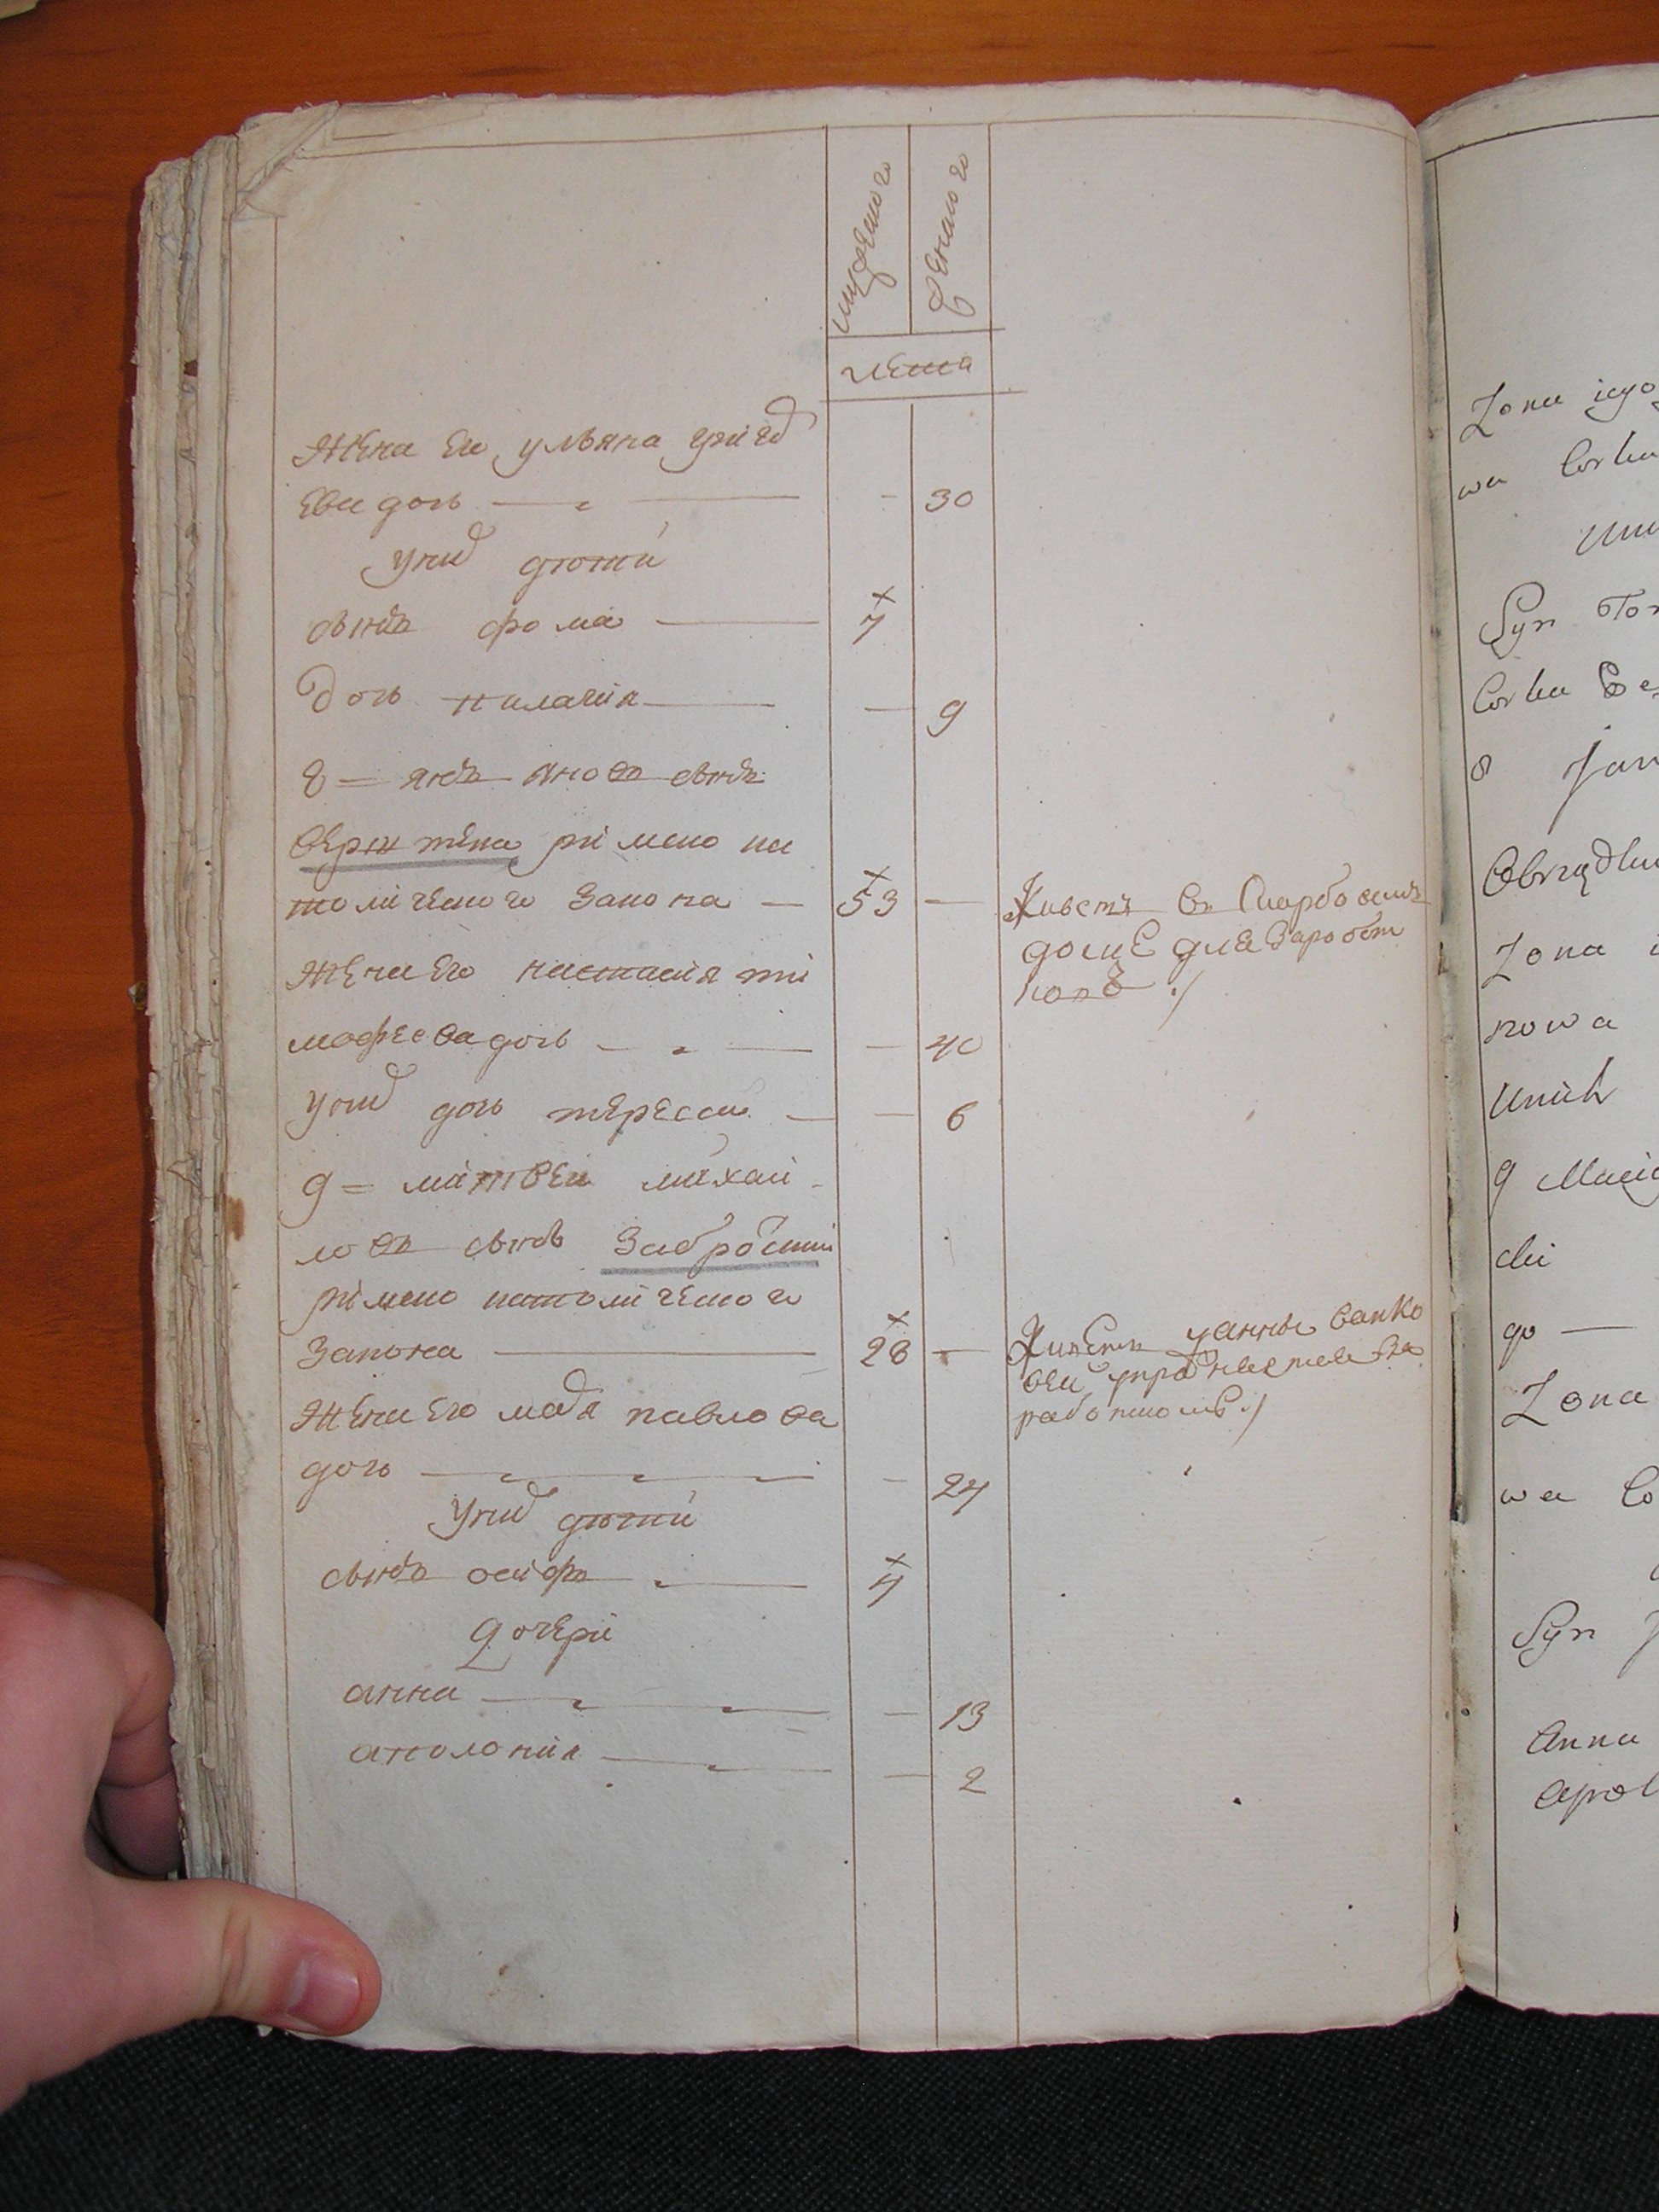 мужеского
женского
лета
Жена Ею ульяна григо
Ева дочь — 30
у них дѣти
сынъ фома — 7
дочь пилагія — 9
8 = янъ яновъ сынъ
римско ка
толического закона — 53 —
Живетъ въ Скарбовымъ
доме для Заработ
Жена Его настасія ти
мофеева дочь — 40
у них дочь тересса — 6
9 = матвей михай
ловъ сынъ Забро́скій
римско католического
Закона — 28 —
Живетъ у анны Савко
работкомъ ./
Жена Его мадя павлова
дочь — 24
у них дѣти
сынъ осифъ — 4
дочери
анна — 13
аполонія — 2
Zona iego
wa Corka
Syn Tom
Corka
8 Jan
Obrządku
Zona i
nowa
Unich
9 Macie
ski
go —
Zona
wa Co
Syn J
Anna
Apol